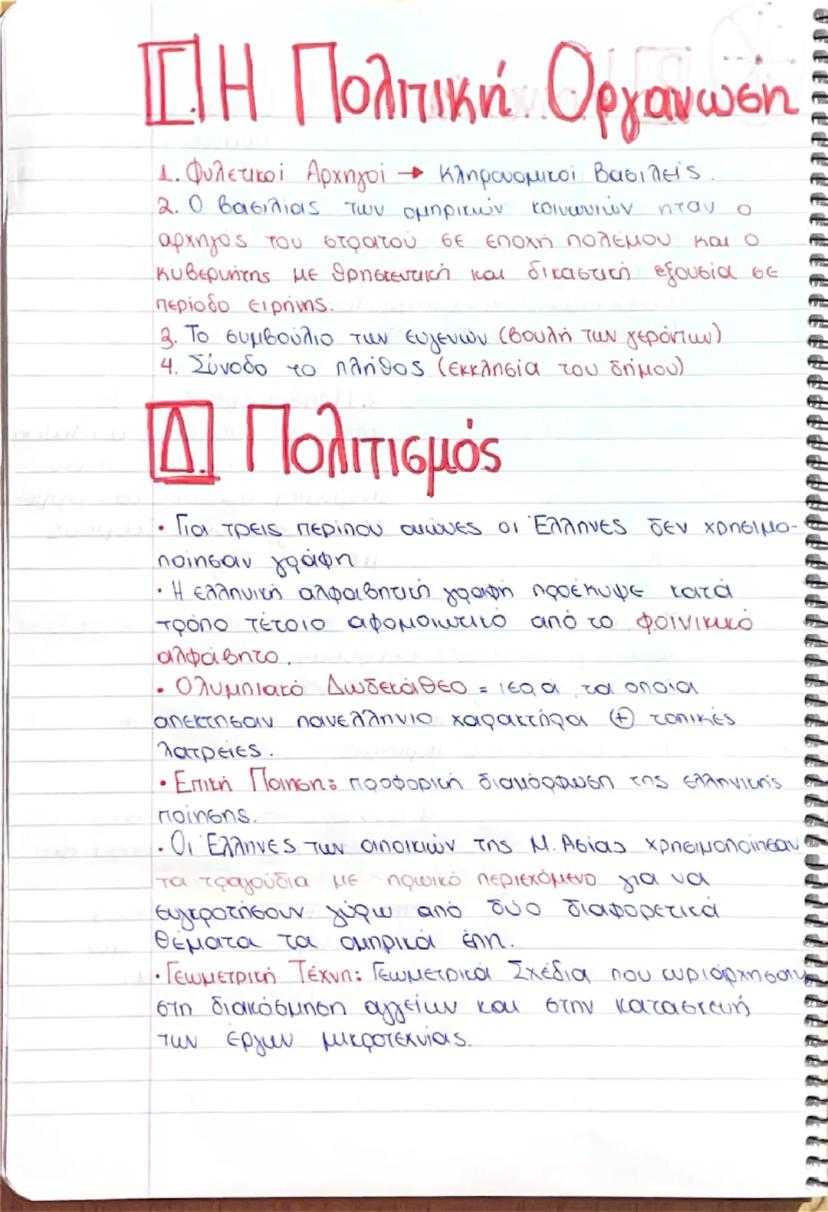 Γ. Η Πολιτική Οργάνωση
1. Φυλετικοί Αρχηγοί → Κληρονομικοί Βασιλείς.
2. Ο Βασιλίας των ομηρικών κοινωνιών ήταν ο
αρχηγός του στρατού σε εποχή πολέμου και ο
κυβερνήτης με θρησκευτική και δικαστική εξουσία σε
περίοδο ειρήνης.
3. Το συμβούλιο των ευγενών (βουλή των γερόντων)
4. Σύνοδο το πλήθος (εκκλησία του δήμου)
Δ. Πολιτισμός
• Για τρεις περίπου αιώνες οι Έλληνες δεν χρησιμο-
ποίησαν γράφη
• Η ελληνική αλφαβητική γραφή προέκυψε κατά
τρόπο τέτοιο αφομοιωτικό από το φοινικικό
αλφάβητο.
• Ολυμπιακό Δωδεκάθεο = ιερά, τα οποία
απέκτησαν πανελλήνιο χαρακτήρα ⊕ τοπικές
λατρείες.
• Επική Ποίηση: προφορική διαμόρφωση της ελληνικής
ποίησης.
• Οι Έλληνες των αποικιών της Μ. Ασίας χρησιμοποίησαν
τα τραγούδια με ηρωικό περιεχόμενο για να
συγκροτήσουν γύρω από δύο διαφορετικά
θέματα τα ομηρικά έπη.
• Γεωμετρική Τέχνη: Γεωμετρικά Σχέδια που κυριάρχησαν
στη διακόσμηση αγγείων και στην κατασκευή
των έργων μικροτεχνίας.